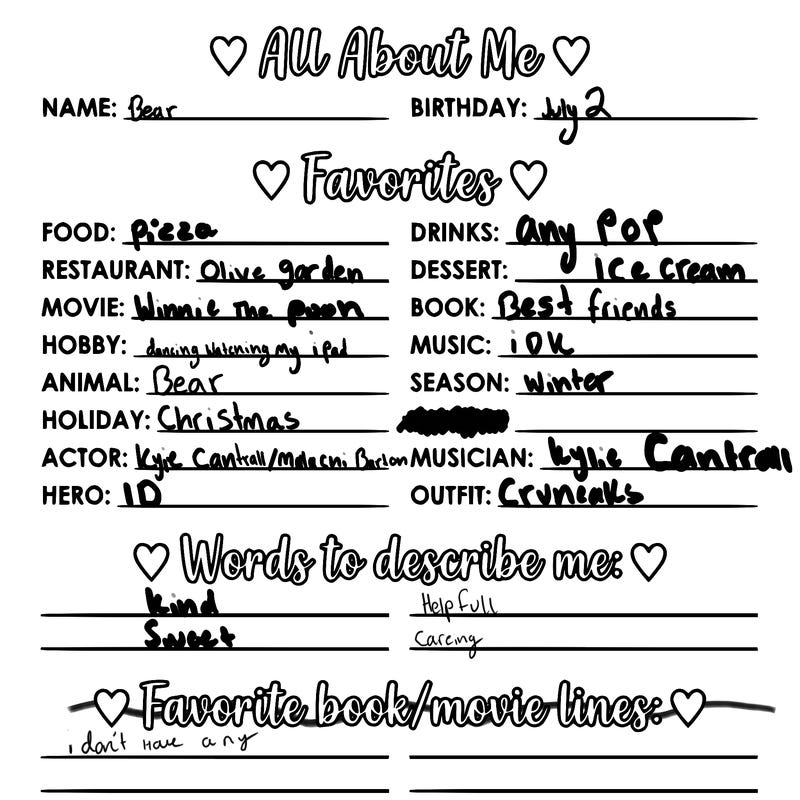 All About Me
NAME: Bear BIRTHDAY: July 2
Favorites
FOOD: pizza DRINKS: any Pop
RESTAURANT: Olive garden DESSERT: Ice cream
MOVIE: Winnie The pooh BOOK: Best friends
HOBBY: dancing Watching My ipad MUSIC: iDK
ANIMAL: Bear SEASON: Winter
HOLIDAY: Christmas
ACTOR: Kylie Cantrall/Malachi Barton MUSICIAN: kylie Cantrall
HERO: ID OUTFIT: Crvneaks
Words to describe me:
kind Helpfull
Sweet Careing
Favorite book/movie lines:
i don't Have any